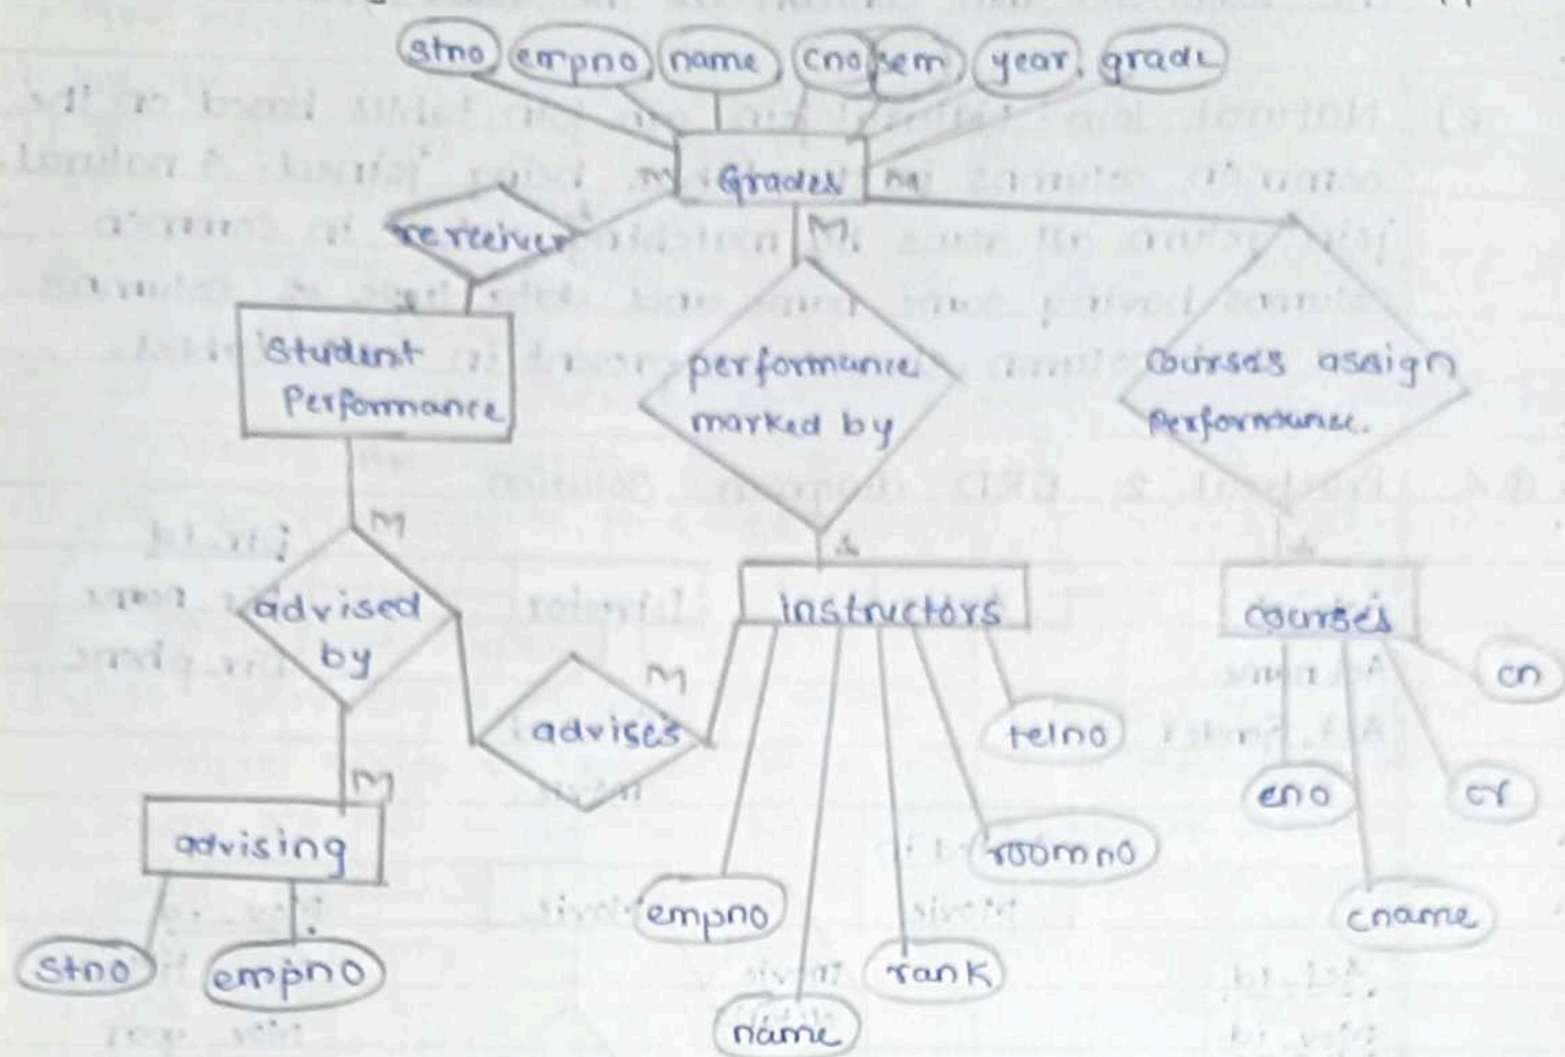 stno empno name cno sem year grade
Grades
M M
M
receiver
1
Student
Performance
performance
marked by
courses assign
performance.
M
1
1
advised
by
instructors
courses
M
advises
cn
telno
eno
cr
M
advising
roomno
empno
cname
stno
empno
rank
name